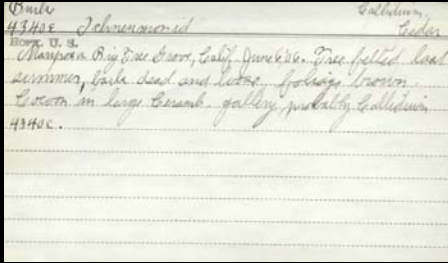 Burke Callidium
4340e Ichneumonid Cedar
Hopk. U. S.
Mariposa Big Tree Grove, Calif. June 6 '06. Tree felled last
summer, bark dead and loose, foliage brown.
Cocoon in large Ceramb. gallery, probably Callidium
4340c.